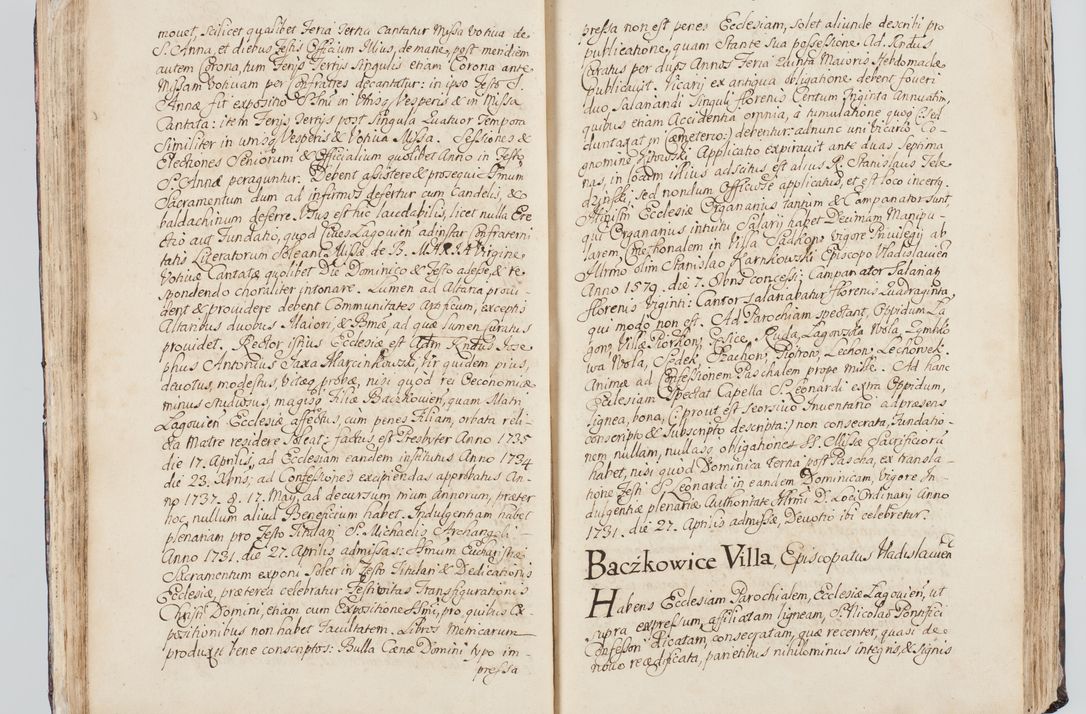 movet, scilicet quaslibet Feria Tertia Cantatur Missa Votiva de
S. Anna, et diebus Festis Officium Illius, de mane, post meridiem
autem Corona, tum Ferijs Tertijs singulis etiam Corona ante
Missam Votivam per Confratres decantatur: in ipso Festo S.
Annæ fit expositio SSmi in Utrisq Vesperis & in Missa
Cantata: item Ferijs Tertijs post singula Quatuor Tempora
similiter in utrisq Vesperis & Votiva Missa. Sessiones &
Electiones Seniorum & Officialium quolibet Anno in Festo
S. Annæ peraguntur. Debent assistere & prosequi SSmum
Sacramentum dum ad infirmos defertur cum Candelis, &
baldachinum deferre. Usus est hic laudabilis, licet nulla Ere
ctio aut Fundatio, quod Cives Lagovien adinstar Confraterni
tatis Literatorum soleant Missæ de B. MARIA Virgine
Votivæ Cantatæ quolibet Die Dominico & Festo adesse, & re
spondendo choraliter intonare. Lumen ad Altaria provi
dent & providere debent Communitates Artificum, exceptis
Altaribus duobus Maiori, & Bmæ, ad quæ lumen Curatus
providet. Rector istius Ecclesiæ est Adm Rndus Jose
phus Antonius Taxa Marcinkowski, vir quidem pius,
devotus, modestus, vitæq probæ, nisi quod rei Oeconomicæ
minus studiosus, magisq Filiæ Baczkowien, quam Matri
Lagovien Ecclesiæ affectus, cum penes Filiam, orbata reli-
cta Matre residere soleat: factus est Presbyter Anno 1735
die 17. Aprilis, ad Ecclesiam eandem institutus Anno 1734
die 23. Xbris, ad Confessiones excipiendas approbatus An-
no 1737. d. 17. May, ad decursum trium annorum, præter
hoc nullum aliud Beneficium habet. Indulgentiam habet
plenariam pro Festo Titulari S. Michaelis Archangeli
Anno 1731. die 27. Aprilis admissa: SSmum Eucharistiæ
Sacramentum exponi solet in Festo Titulari & Dedicationis
Ecclesiæ, præterea celebratur Festivitas Transfigurationis
Christi Domini, etiam cum Expositione SSmi, pro quibus Ex-
positionibus non habet facultatem. Libros Metricarum
produxit bene conscriptos: Bulla Cænæ Domini typo im-
pressa
pressa non est penes Ecclesiam, solet aliunde describi pro
publicatione, quam stante sua possessione Ad. Rndus
Curatus per duos Annos Feria Quinta Maioris Hebdomadæ
publicavit. Vicarij ex antiqua obligatione debent foveri
duo Salariandi singuli florenis Centum Triginta annuatim,
quibus etiam Accidentia omnia, a tumulatione quoq (sed
duntaxat in Cæmeterio:) debentur: adnunc uni Vicario Co-
gnomine Applicatio expiravit ante duas septima
nas, in locum illius adscitus est alius R. Stanislaus
sed nondum Officiose applicatus, et est loco incerti.
Ecclesiæ Organarius tantum & Campanator sunt,
qui Organarius intuitu Salarij habet Decimam Manipu-
larem Cmethonalem in Villa Sadkow vigore Privilegij ab
Illrmo olim Stanislao Karnkowski Episcopo Wladislavien
Anno 1579. die 7. Obris concessi: Campanator Salariatur
florenis Viginti: Cantor salariabatur florenis Quadraginta,
qui modo non est. Ad Parochiam spectant, Oppidum La
gow, Villæ Piorkow, Ruda, Lagowska Wola,
wa Wola, Sędek, Zbachon, Piotrow, Lechow, Lechowek.
Animæ ad Confessionem Paschalem prope mille. Ad hanc
Ecclesiam Spectat Capella S. Leonardi extra Oppidum,
lignea, bona, (:prout est seorsivo Inventario ad præsens
conscripto & subscripto descripta:) non consecrata, Fundatio-
nem nullam, nullasq obligationes SS. Missæ Sacrificiorū
habet, nisi quod Dominica Tertia post Pascha, ex transla-
tione Festi S. Leonardi in eandem Dominicam, vigore In-
dulgentiæ plenariæ Authoritate Illrmi D. Loci Ordinarij Anno
1731. die 27. Aprilis admissæ, Devotio ibi celebretur.
Baczkowice Villa, Episcopatus Wladislavien
Habens Ecclesiam Parochialem, Ecclesiæ Lagovien, ut
supra expressum, affiliatam ligneam, S. Nicolao Pontifici
Confessori Dicatam, consecratam, quæ recenter, quasi de
novo reædificata, parietibus nihilominus integris, & signis